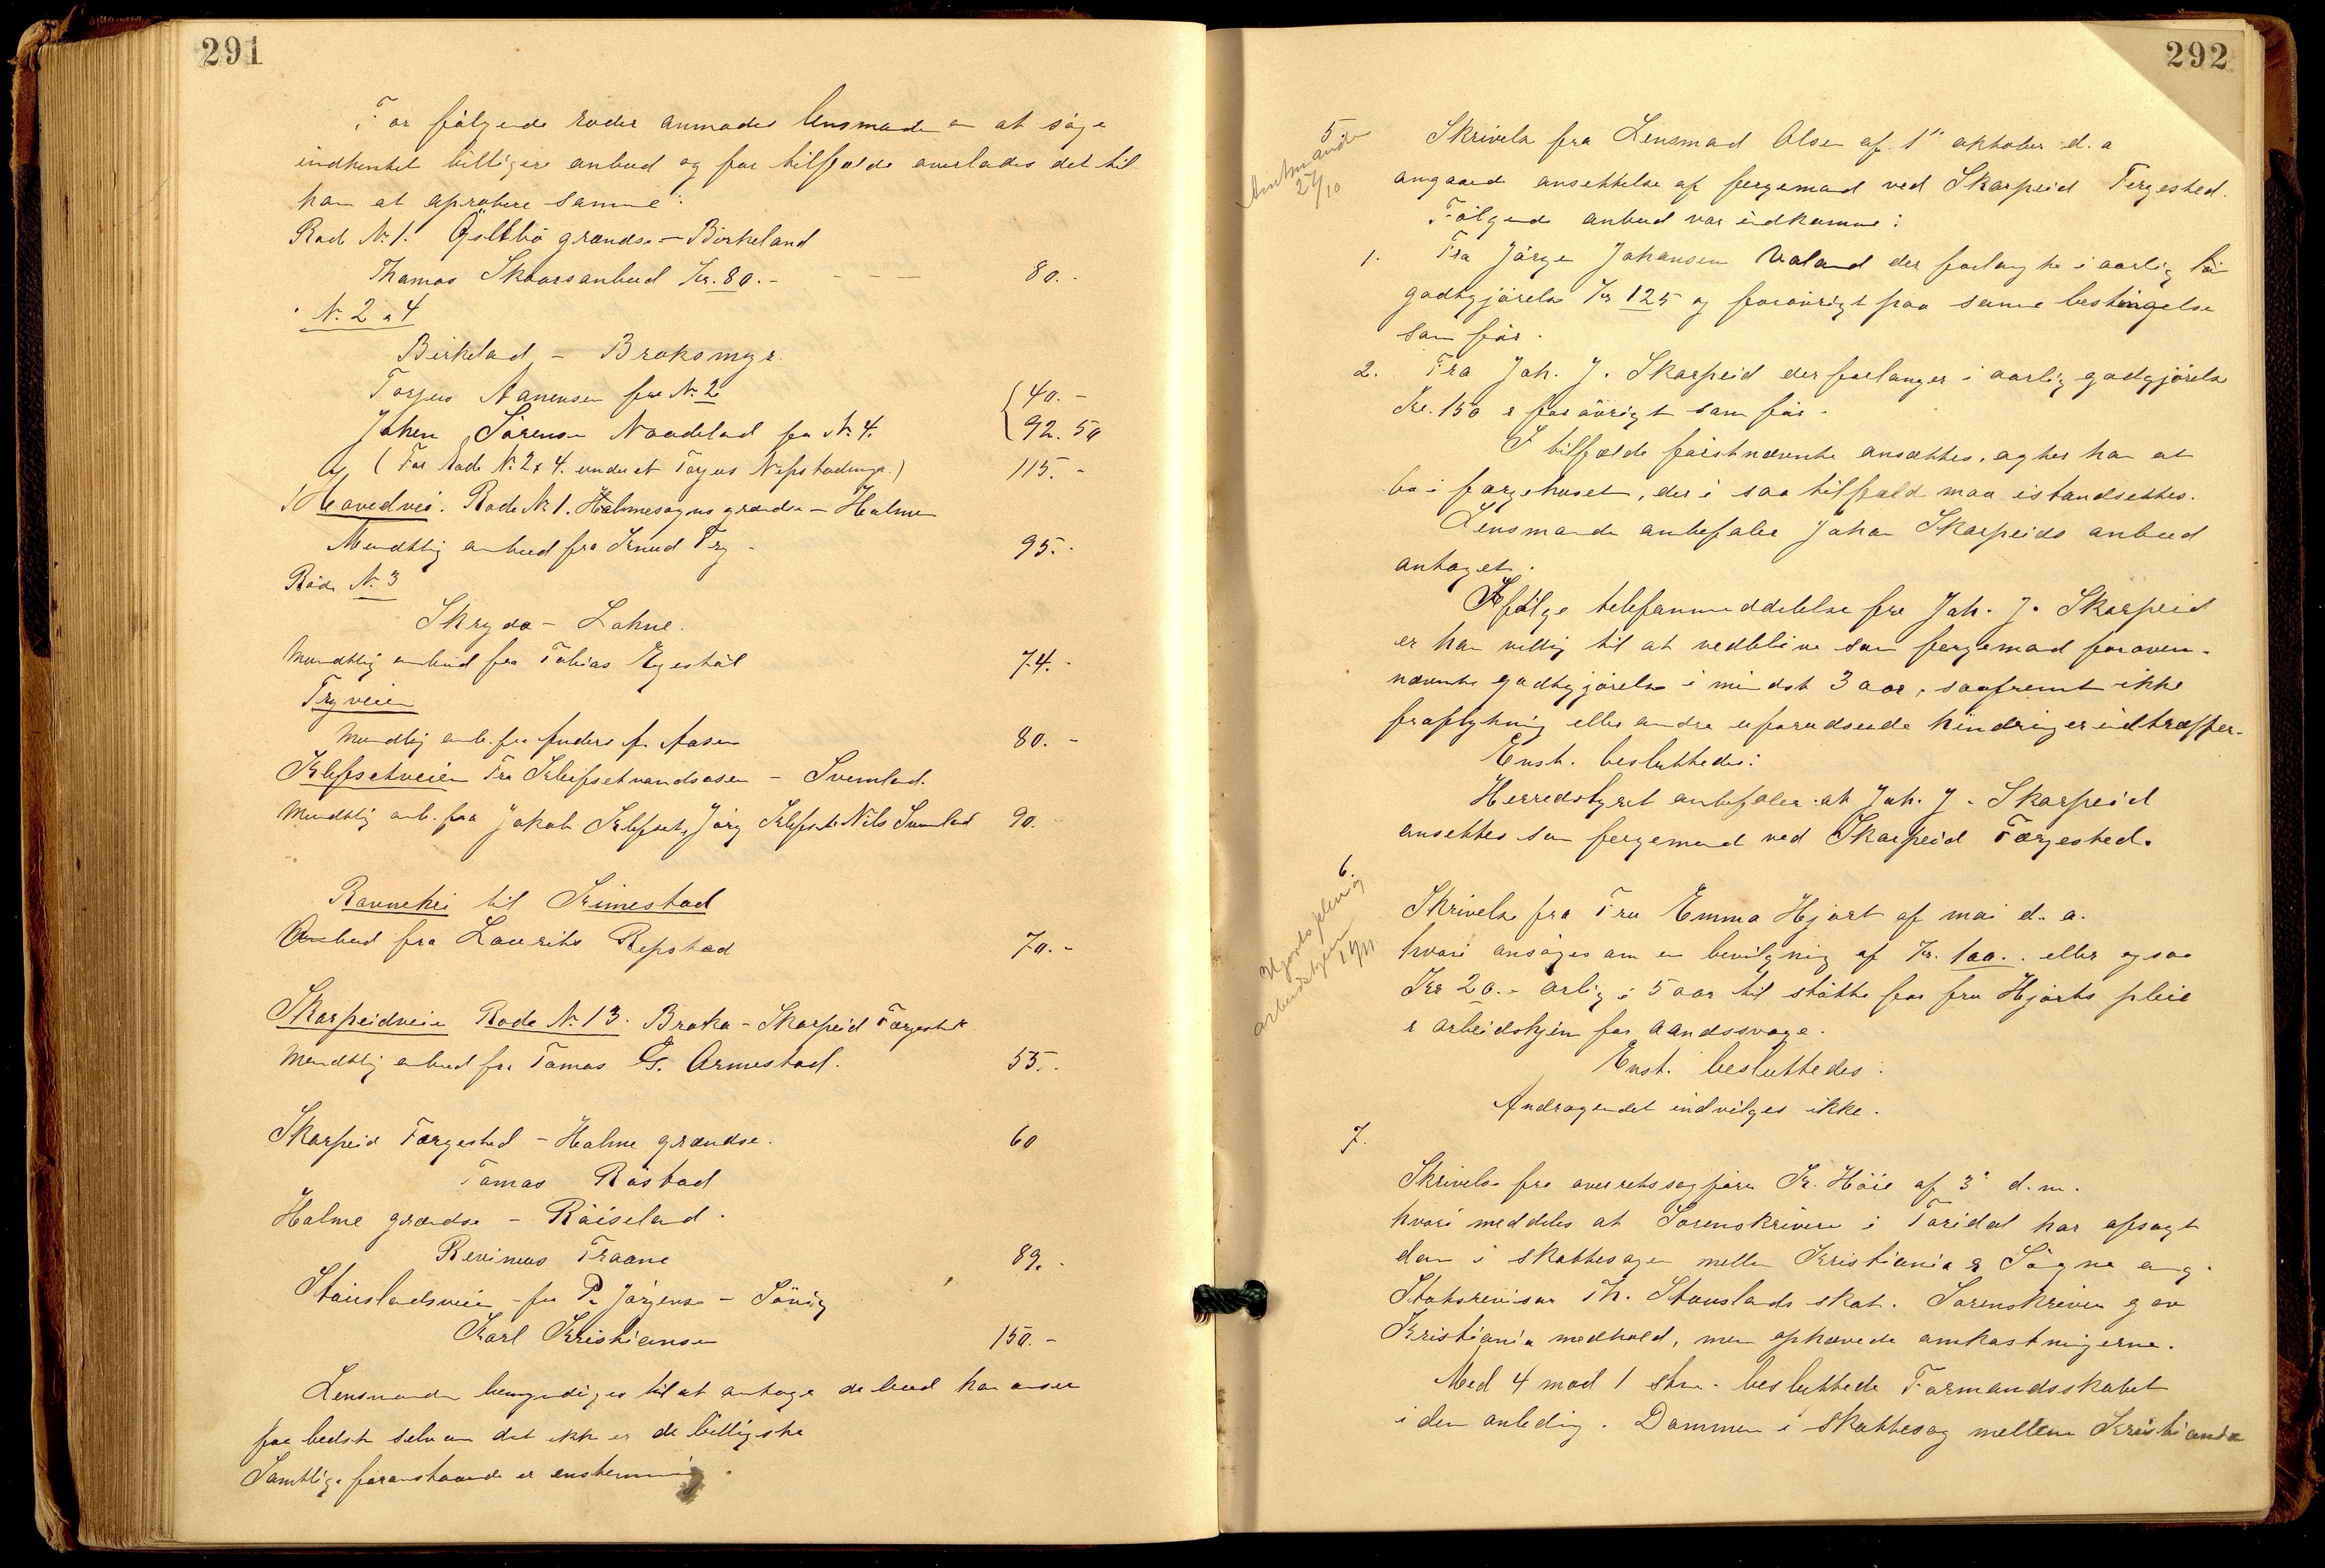 291
For følgende roder anmodes lensmanden om at søge
indhentet billigere anbud og for tilfælde overlades det til
ham at aprobere samme:
Rode No 1. Gsllbø grændse - Birkeland
Thomas Skaarsanbud Kr. 80.- - - - 80.-
No. 2 & 4
Birkelad - Broksmyr.
Torjus Aanensen for No 2 40.-
Johan Sørensen Naadelad for No 4. 92.50
Og (For Rode No 2 & 4. under et Torjus Repstadmyr.) 115.-
Hovedvei. Rode No 1. Halmesogns grændse - Holmen
Mundtlig anbud fra Knud Try - 95.-
Rode No. 3
Skryda - Lohne.
Mundtlig anbud fra Tobias Egestøl 74.-
Tryveien
Mundtlig anb. fra Anders A. Aasen 80.-
Klepsetveien Fra Klepsetvandsosen - Svemlad.
Mundtlig anb. fra Jakob Klepset, Jørg Klepset & Nils Svemlad 90.-
Ravnehei til Kimestad
Anbud fra Laurits Repstad 70.-
Skarpeidveien Rode No. 13. Broka - Skarpeid Færgested
Mundtlig anbud fra Tomas G. Armestad. 55.-
Skarpeid Færgested - Halme grændse. 60
Tomas Røstad
Halme grændse - Røiseland.
Revinius Traane 89.-
Stauslandsveien - fra P. Jørgensen - Søvig
Karl Kristiansen 150.-
Lensmanden bemyndiges til at antage de bud han anser
for bedst selv om det ikke er de billigste
Samtlige foranstaaende er enstemmig.
292
5 Skrivelse fra Lensmand Olsen af 1ste oktober d. a
Amtmanden
27/10
angaaend ansettelse af fergemand ved Skarpeid Fergested.
Følgende anbud var indkomne:
1. Fra Jørgen Johansen Valand der forlangte i aarlig
godtgjørelse Kr 125 og forøvrigt paa samme bestingelse
som før.
2. Fra Joh. J. Skarpeid der forlanger i aarlig godgjørelse
Kr. 150 & forøvrigt som før.
I tilfælde førstnævnte ansættes, agter han at
bo i færgehuset, der i saa tilfæld maa istandsettes.
Lensmanden anbefaler Johan Skarpeids anbud
antaget.
Ifølge telefonmeddelelse fra Joh. J. Skarpeid
er han villig til at vedblive som fergemand for oven-
nævnte godtgjørelse i mindst 3 aar, saafremt ikke
fraflytning eller andre uforudseede hindringer indtræffer.
Enst. besluttedes:
Herredstyret anbefaler at Joh. J. Skarpeid
ansettes som fergemand ved Skarpeid Færgested.
6.
Hjorts pleie og
arbeidshjem
1/11
Skrivelse fra Fru Emma Hjort af mai d. a.
hvori ansøges om en bevilgning af Kr. 100.- eller ogsaa
Kr 20.- arlig i 5 aar til støtte for fru Hjorts pleie
& arbeidshjem for aandssvage.
Enst. besluttedes:
Andragendet indvilges ikke.
7.
Skrivelse fra overretssagfører Kr. Høie af 3die d. m.
hvori meddeles at Sorenskriveren i Toridal har afsagt
dom i skattesagen mellem Kristiania & Søgne ang.
Statsrevisor Th. Stauslands skat. Sorenskriveren gav
Kristiania medhold, men ophævede omkostningerne.
Med 4 mod 1 stm. besluttede Formandsskabet
i den anledning. Dommen i skattesag mellem Kristiania